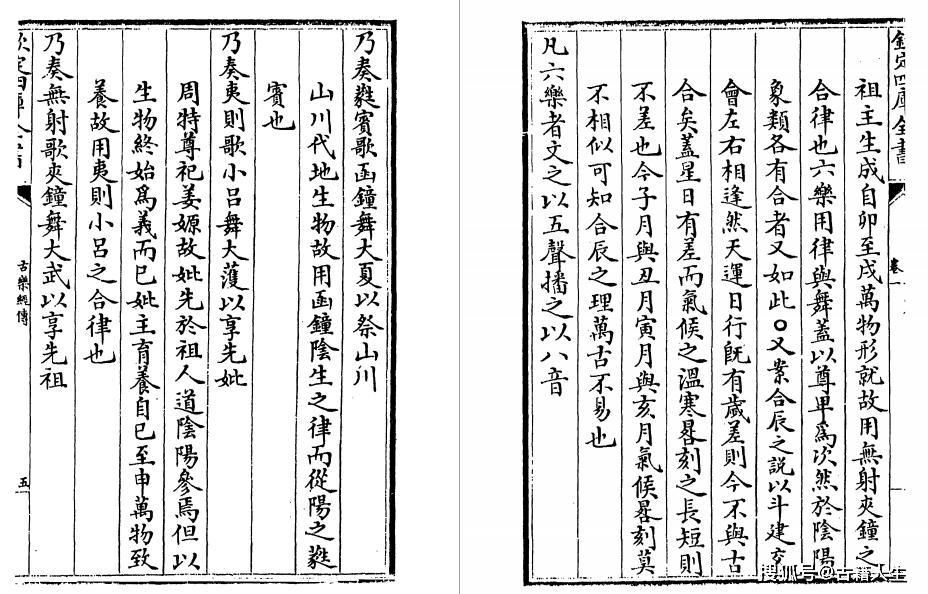 乃奏蕤賓歌函鐘舞大夏以祭山川
山川代地生物故用函鐘陰生之律而從陽之蕤
賓也
乃奏夷則歌小呂舞大濩以享先妣
周特尊祀姜嫄故妣先於祖人道陰陽參焉但以
生物終始爲義而已妣主育養自巳至申萬物致
養故用夷則小呂之合律也
乃奏無射歌夾鐘舞大武以享先祖
古樂經傳
五
欽定四庫全書
卷一
祖主生成自卯至戌萬物形就故用無射夾鐘之
合律也六樂用律與舞蓋以尊卑爲次然於陰陽
象類各有合者又如此○又案合辰之說以斗建交
會左右相逢然天運日行旣有歲差則今不與古
合矣蓋星日有差而氣候之溫寒晷刻之長短則
不差也今子月與丑月寅月與亥月氣候晷刻莫
不相似可知合辰之理萬古不易也
凡六樂者文之以五聲播之以八音
搜狐号@古籍人生